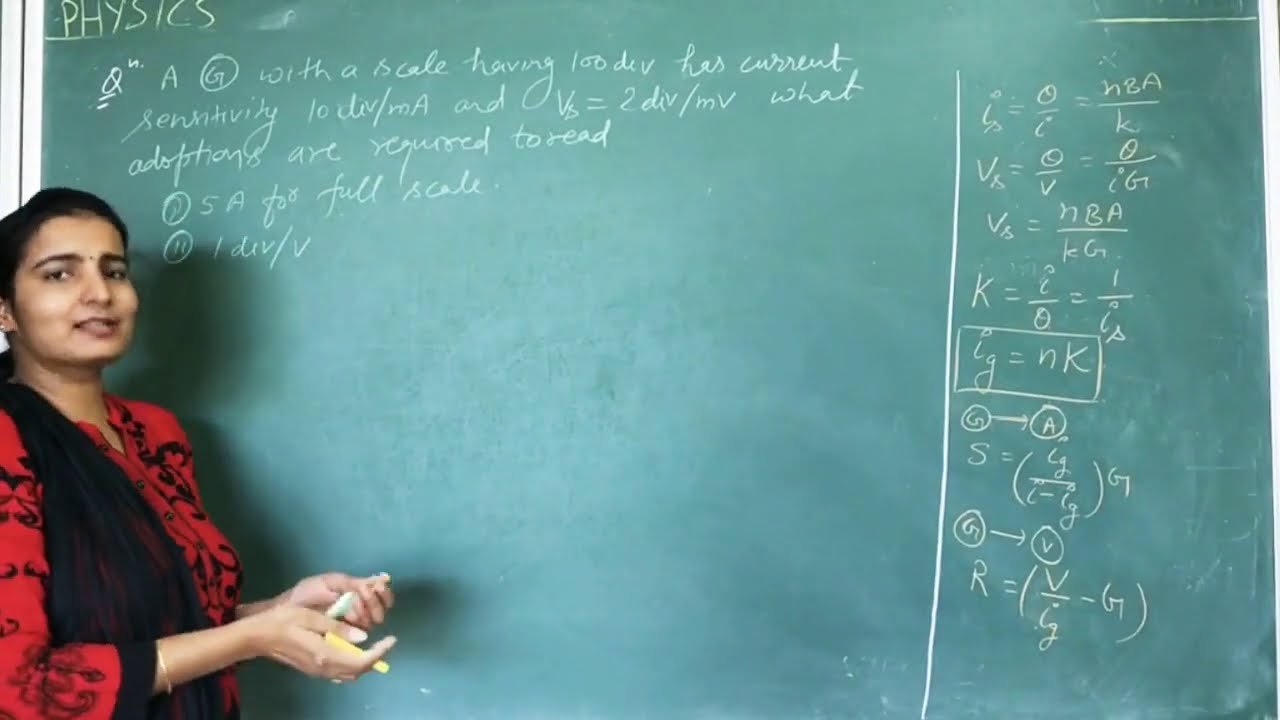 PHYSICS
Qn. A G with a scale having 100 div has current
sensitivity 10 div/mA and Vs = 2 div/mV what
adoptions are required to read
(i) 5 A for full scale.
(ii) 1 div/V
is = θ/i = nBA/k
Vs = θ/V = θ/iG
Vs = nBA/kG
K = i/θ = 1/is
ig = nK
G → A
S = (ig/(i-ig))G
G → V
R = (V/ig - G)